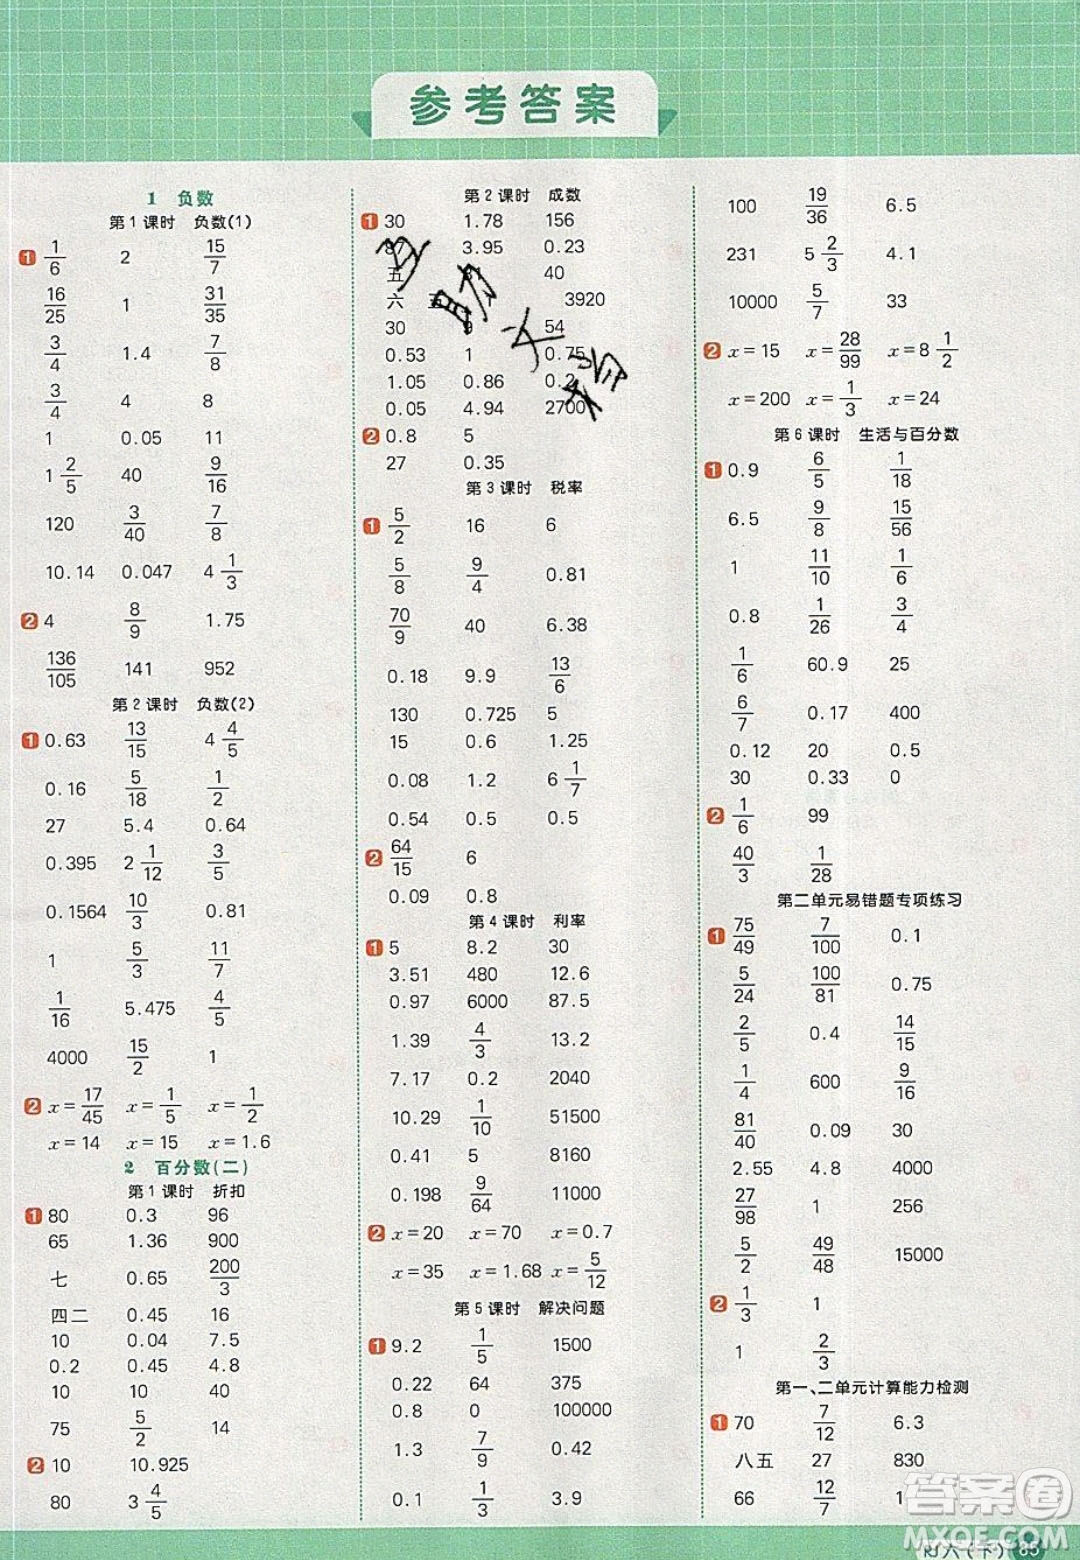 参考答案
1 负数
第1课时 负数(1)
1 1/6 2 15/7
16/25 1 31/35
3/4 1.4 7/8
3/4 4 8
1 0.05 11
1 2/5 40 9/16
120 3/40 7/8
10.14 0.047 4 1/3
2 4 8/9 1.75
136/105 141 952
第2课时 负数(2)
1 0.63 13/15 4 4/5
0.16 5/18 1/2
27 5.4 0.64
0.395 2 1/12 3/5
0.1564 10/3 0.81
1 5/3 11/7
1/16 5.475 4/5
4000 15/2 1
2 x=17/45 x=1/5 x=1/2
x=14 x=15 x=1.6
2 百分数(二)
第1课时 折扣
1 80 0.3 96
65 1.36 900
七 0.65 200/3
四二 0.45 16
10 0.04 7.5
0.2 0.45 4.8
10 10 40
75 5/2 14
2 10 10.925
80 3 4/5
第2课时 成数
1 30 1.78 156
87 3.95 0.23
五 40
六 3920
30 9 54
0.53 1 0.75
1.05 0.86
0.05 4.94 2700
2 0.8 5
27 0.35
第3课时 税率
1 5/2 16 6
5/8 9/4 0.81
70/9 40 6.38
0.18 9.9 13/6
130 0.725 5
15 0.6 1.25
0.08 1.2 6 1/7
0.54 0.5 0.5
2 64/15 6
0.09 0.8
第4课时 利率
1 5 8.2 30
3.51 480 12.6
0.97 6000 87.5
1.39 4/3 13.2
7.17 0.2 2040
10.29 1/10 51500
0.41 5 8160
0.198 9/64 11000
2 x=20 x=70 x=0.7
x=35 x=1.68 x=5/12
第5课时 解决问题
1 9.2 1/5 1500
0.22 64 375
0.8 0 100000
1.3 7/9 0.42
0.1 1/3 3.9
100 19/36 6.5
231 5 2/3 4.1
10000 5/7 33
2 x=15 x=28/99 x=8 1/2
x=200 x=1/3 x=24
第6课时 生活与百分数
1 0.9 6/5 1/18
6.5 9/8 15/56
1 11/10 1/6
0.8 1/26 3/4
1/6 60.9 25
6/7 0.17 400
0.12 20 0.5
30 0.33 0
2 1/6 99
40/3 1/28
第二单元易错题专项练习
1 75/49 7/100 0.1
5/24 100/81 0.75
2/5 0.4 14/15
1/4 600 9/16
81/40 0.09 30
2.55 4.8 4000
27/98 1 256
5/2 49/48 15000
2 1/3 1
1 2/3
第一、二单元计算能力检测
1 70 7/12 6.3
八五 27 830
66 12/7
答案圈
MXQE.COM
RJ六(下) 85